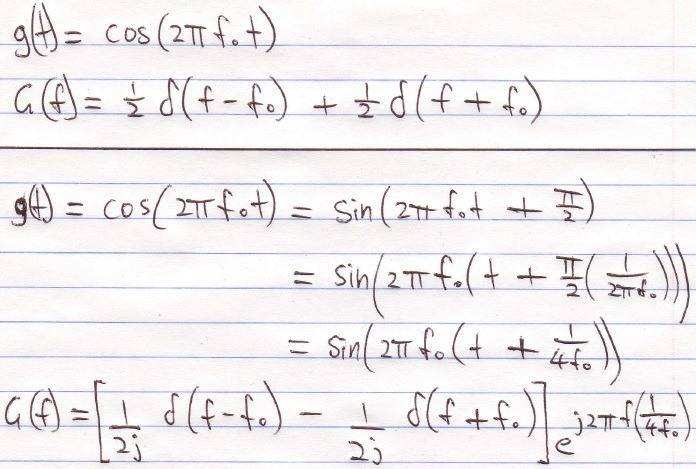 g(t) = cos(2πf₀t)
G(f) = ½ δ(f-f₀) + ½ δ(f+f₀)
g(t) = cos(2πf₀t) = sin(2πf₀t + π/2)
= sin(2πf₀(t + π/2(1/2πf₀)))
= sin(2πf₀(t + 1/4f₀))
G(f) = [1/2j δ(f-f₀) - 1/2j δ(f+f₀)] e^j2πf(1/4f₀)